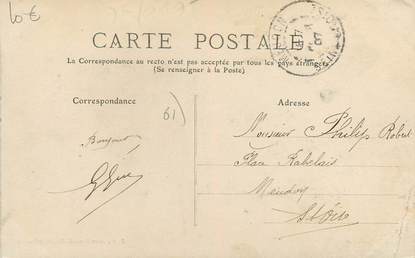 10 €
CARTE POSTALE
La Correspondance au recto n'est pas acceptée par tous les pays étrangers
(Se renseigner à la Poste)
Correspondance
61)
Adresse
Bonjour
Monsieur Philip Robert
Place Rabelais
Meudon
S et Oise